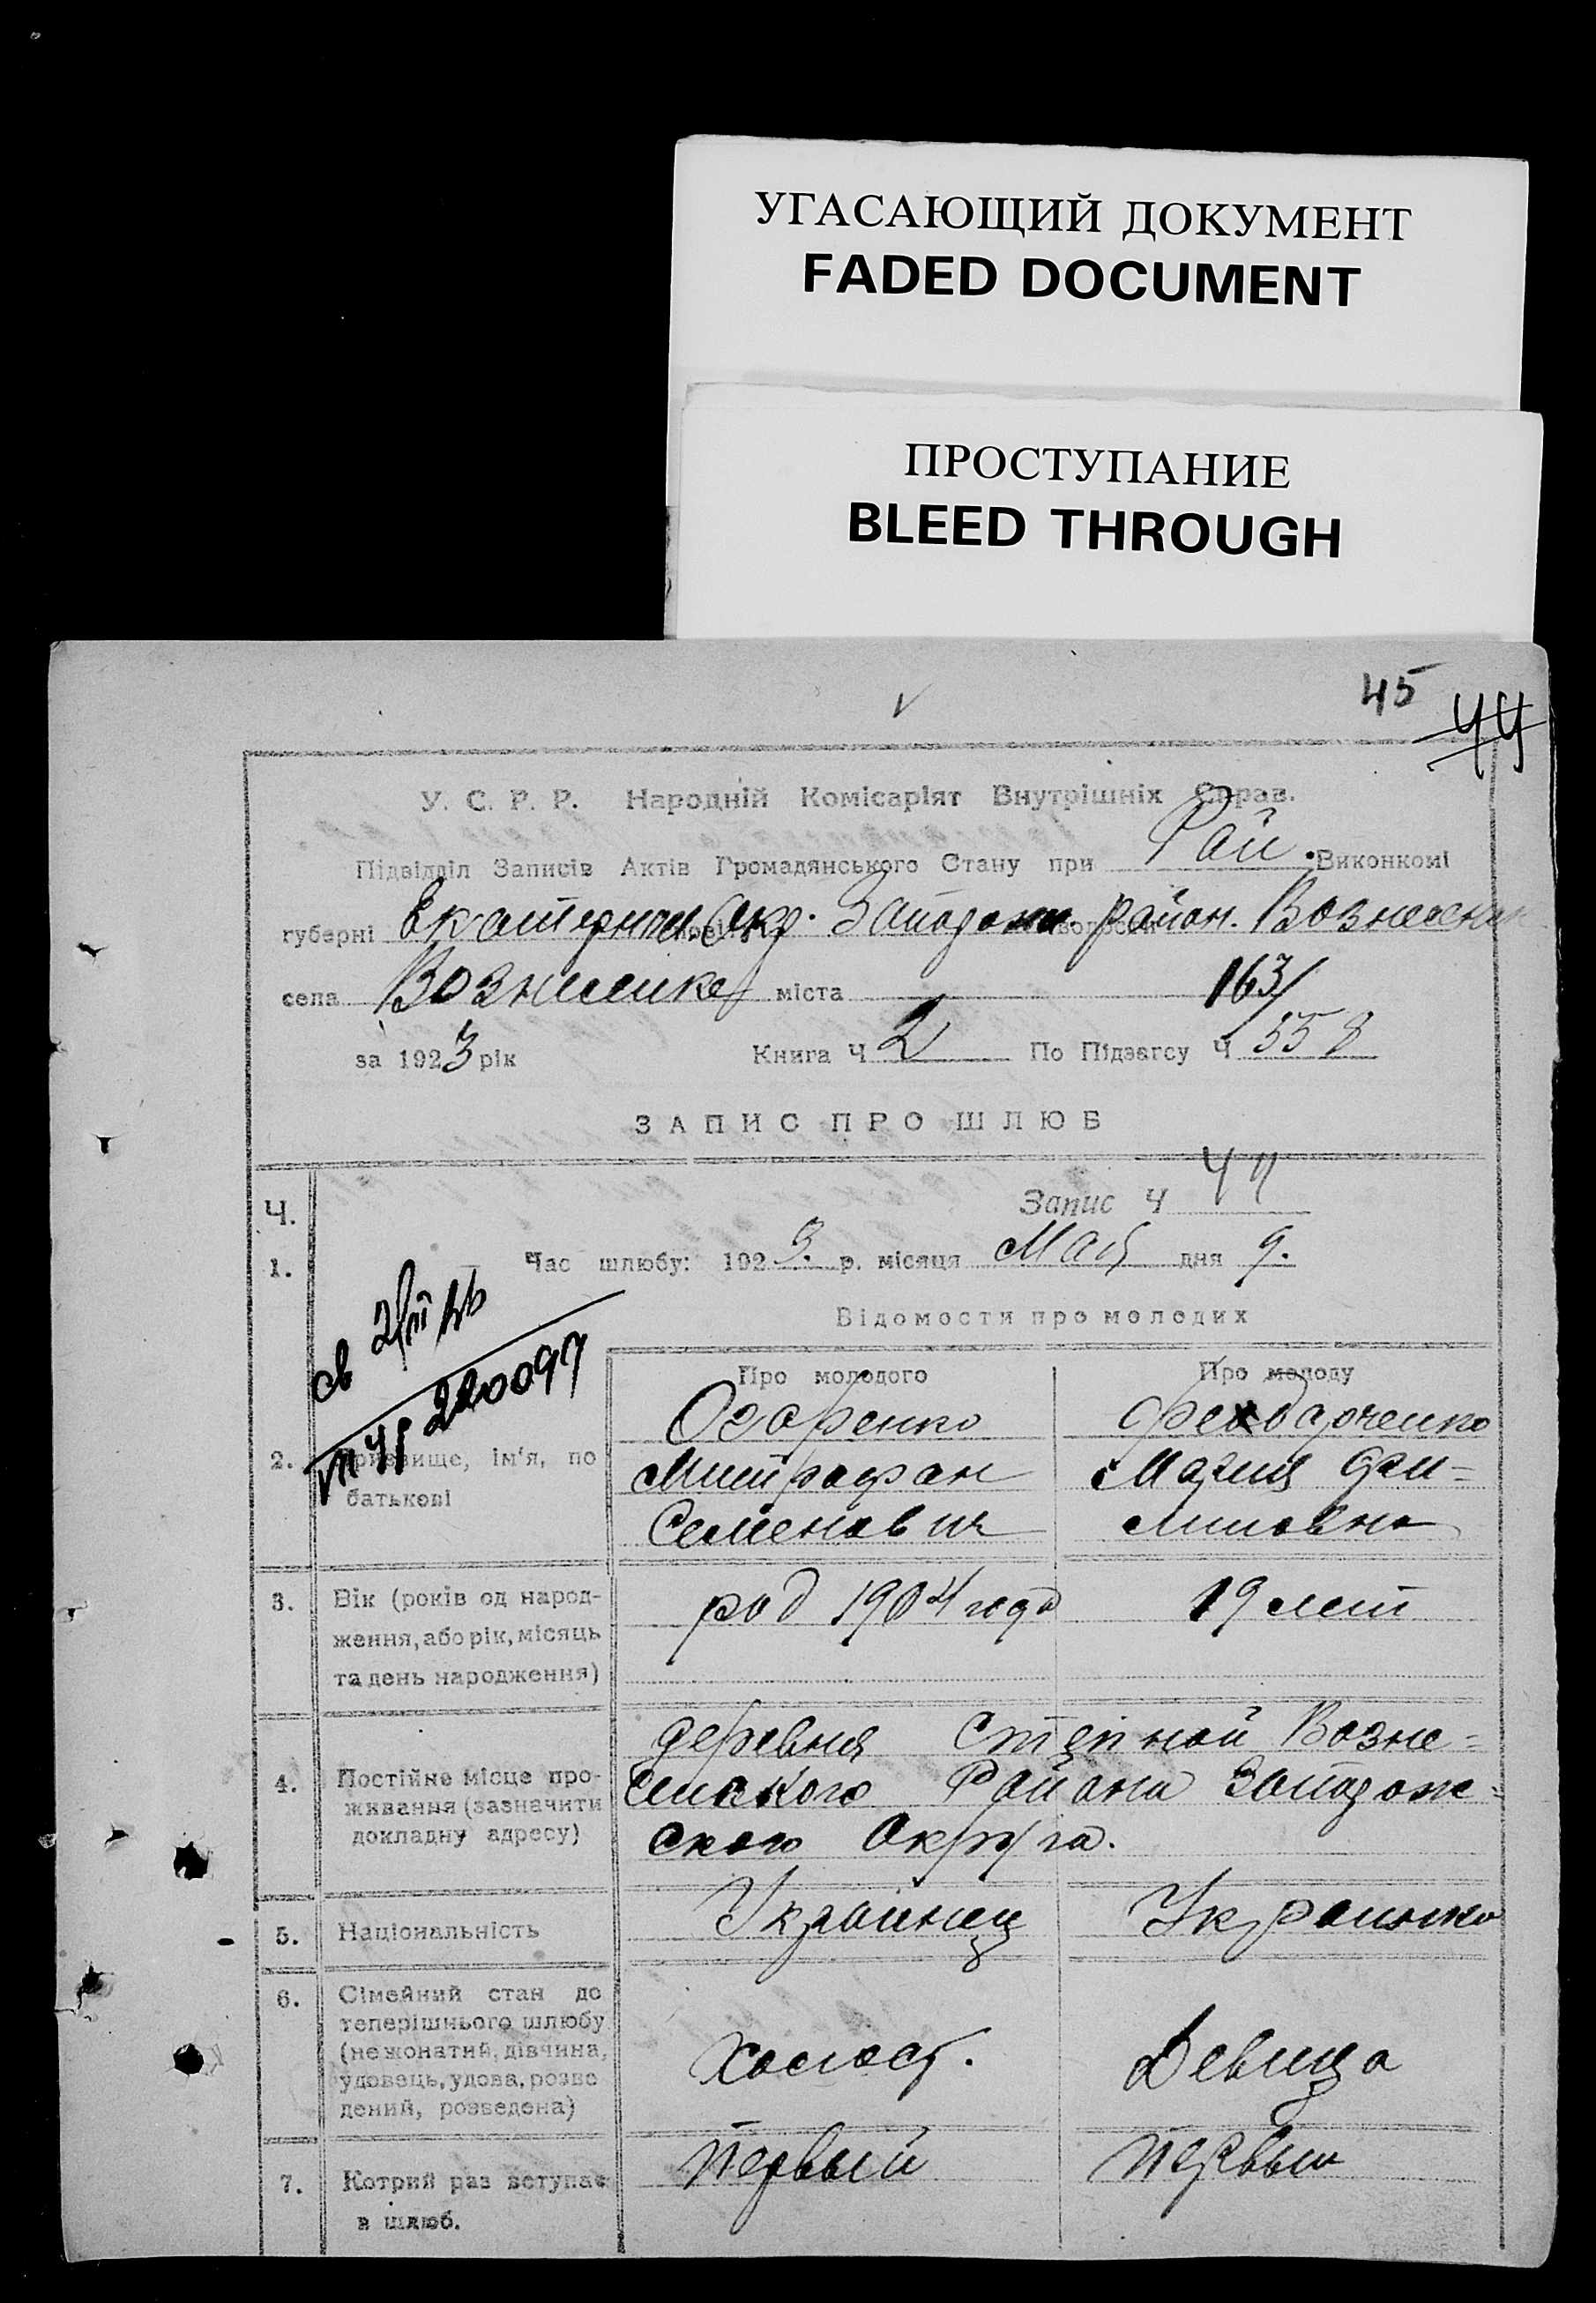 УГАСАЮЩИЙ ДОКУМЕНТ
FADED DOCUMENT
ПРОСТУПАНИЕ
BLEED THROUGH
45
44
У. С. Р. Р. Народній Комісаріят Внутрішніх Справ.
Підвідділ Записів Актів Громадянського Стану при Рай. Виконкомі
губерні Екатеринсл. Окр. Запорожи район. Вознесенки
села Вознесенка міста 163/
за 1923 рік Книга Ч 2 По Підзагсу Ч 558
ЗАПИС ПРО ШЛЮБ
Запис Ч 44
Ч.
1. Час шлюбу: 1923. р. місяця Мая дня 9.
Відомости про молодих
220097
Про молодого Про молоду
2. Призвище, ім'я, по батькові
Митрофан Мария
Семенович
3. Вік (років од народження, або рік, місяць та день народження)
род 1904 года 19 лет
4. Постійне місце проживання (зазначити докладну адресу)
деревня Степной Возне-
сенского Района Запорож-
ского Округа.
5. Національність Украинец Украинка
6. Сімейний стан до теперішнього шлюбу (нежонатий, дівчина, удовець, удова, розведений, розведена)
Холост. Девица
7. Котрий раз вступає в шлюб.
Первый Первый